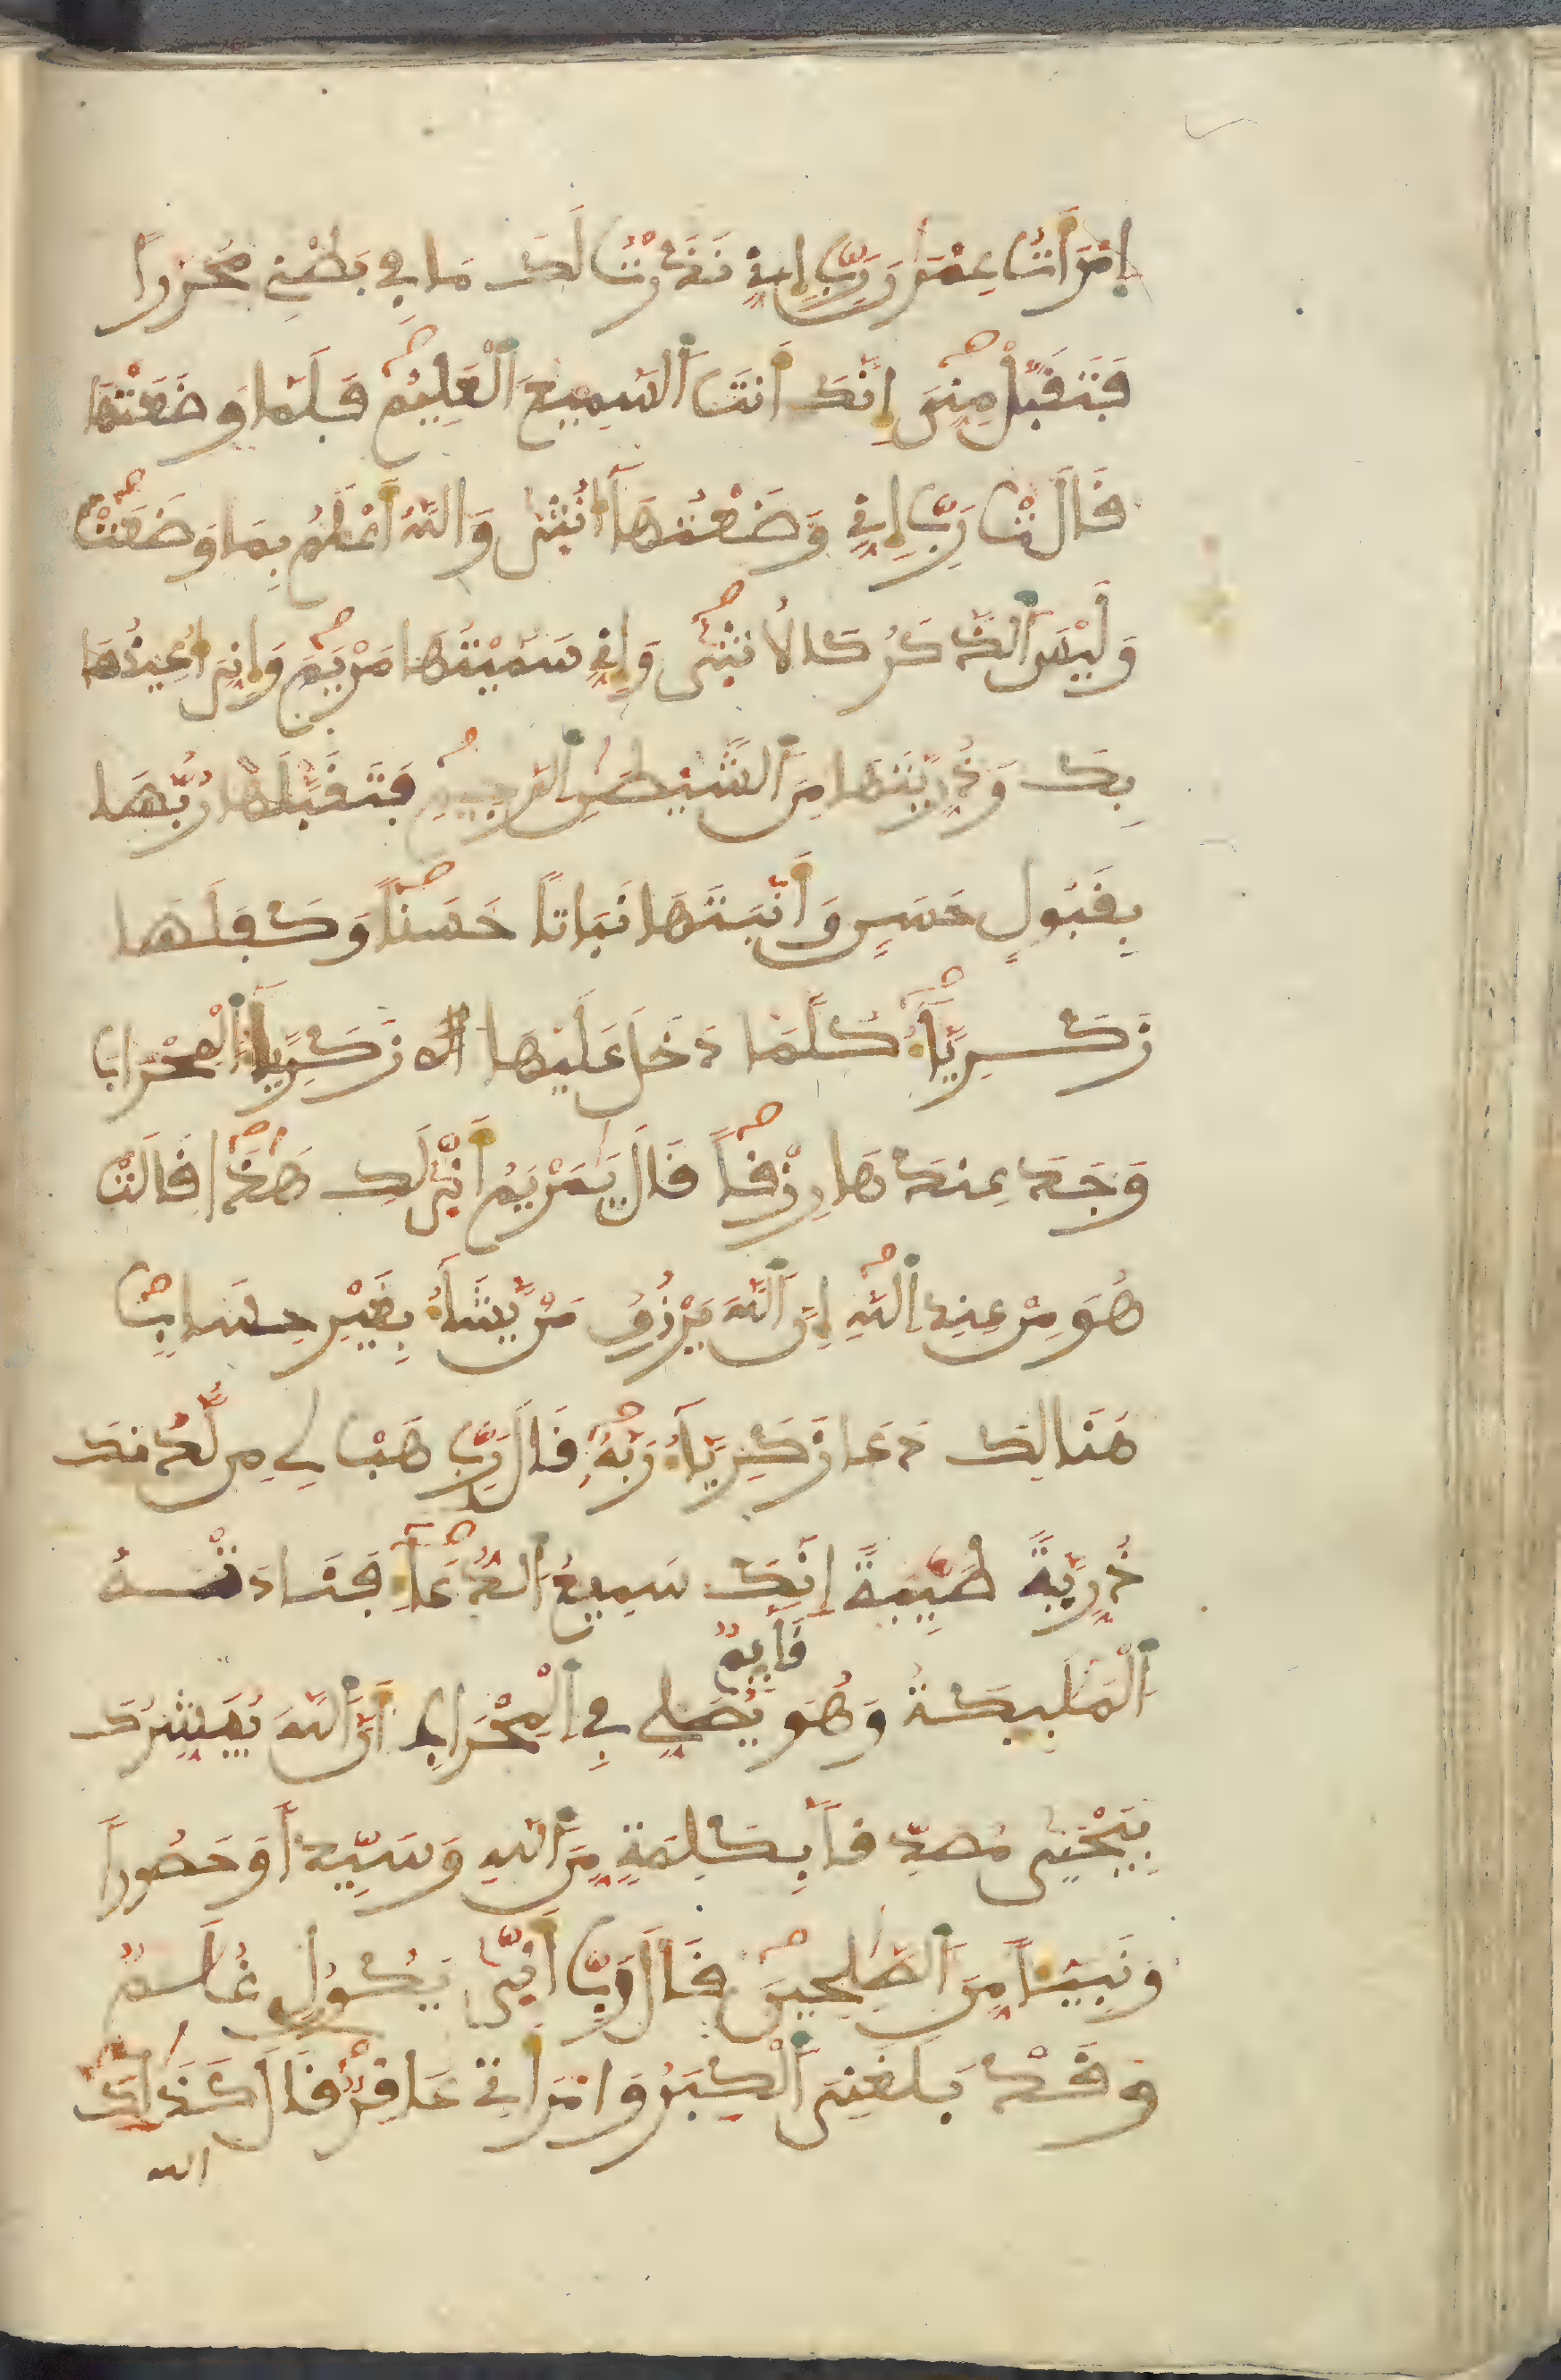 اِمْرَأَتُ عِمْرَٰنَ رَبِّ إِنِّے نَذَرْتُ لَكَ مَا فِے بَطْنِے مُحَرَّراً
فَتَقَبَّلْ مِنِّيَ إِنَّكَ أَنتَ اَ۬لسَّمِيعُ اُ۬لْعَلِيمُ فَلَمَّا وَضَعَتْهَا
قَالَتْ رَبِّ إِنِّے وَضَعْتُهَآ أُنثَىٰ وَاللَّهُ أَعْلَمُ بِمَا وَضَعَتْ
وَلَيْسَ اَ۬لذَّكَرُ كَالُانثَىٰ وَإِنِّے سَمَّيْتُهَا مَرْيَمَ وَإِنِّيَ أُعِيذُهَا
بِكَ وَذُرِّيَّتَهَا مِنَ اَ۬لشَّيْطَٰنِ اِ۬لرَّجِيمِ فَتَقَبَّلَهَا رَبُّهَا
بِقَبُولٍ حَسَنٍ وَأَنۢبَتَهَا نَبَاتاً حَسَناً وَكَفَلَهَا
زَكَرِيَّآءُ كُلَّمَا دَخَلَ عَلَيْهَا زَكَرِيَّآءُ اُ۬لْمِحْرَابَ
وَجَدَ عِندَهَا رِزْقاً قَالَ يَٰمَرْيَمُ أَنَّىٰ لَكِ هَٰذَا قَالَتْ
هُوَ مِنْ عِندِ اِ۬للَّهِ إِنَّ اَ۬للَّهَ يَرْزُقُ مَنْ يَّشَآءُ بِغَيْرِ حِسَابٍ
هُنَالِكَ دَعَا زَكَرِيَّآءُ رَبَّهُۥ قَالَ رَبِّ هَبْ لِے مِن لَّدُنكَ
ذُرِّيَّةً طَيِّبَةً إِنَّكَ سَمِيعُ اُ۬لدُّعَآءِ فَنَادَتْهُ
اُ۬لْمَلَٰٓئِكَةُ وَهُوَ قَآئِمٌ يُصَلِّے فِے اِ۬لْمِحْرَابِ أَنَّ اَ۬للَّهَ يُبَشِّرُكَ
بِيَحْيَىٰ مُصَدِّقاً بِكَلِمَةٍ مِّنَ اَ۬للَّهِ وَسَيِّداً وَحَصُوراً
وَنَبِيٓـٔاً مِّنَ اَ۬لصَّٰلِحِينَ قَالَ رَبِّ أَنَّىٰ يَكُونُ لِے غُلَٰمٌ
وَقَدْ بَلَغَنِيَ اَ۬لْكِبَرُ وَامْرَأَتِے عَاقِرٌ قَالَ كَذَٰلِكَ
الله